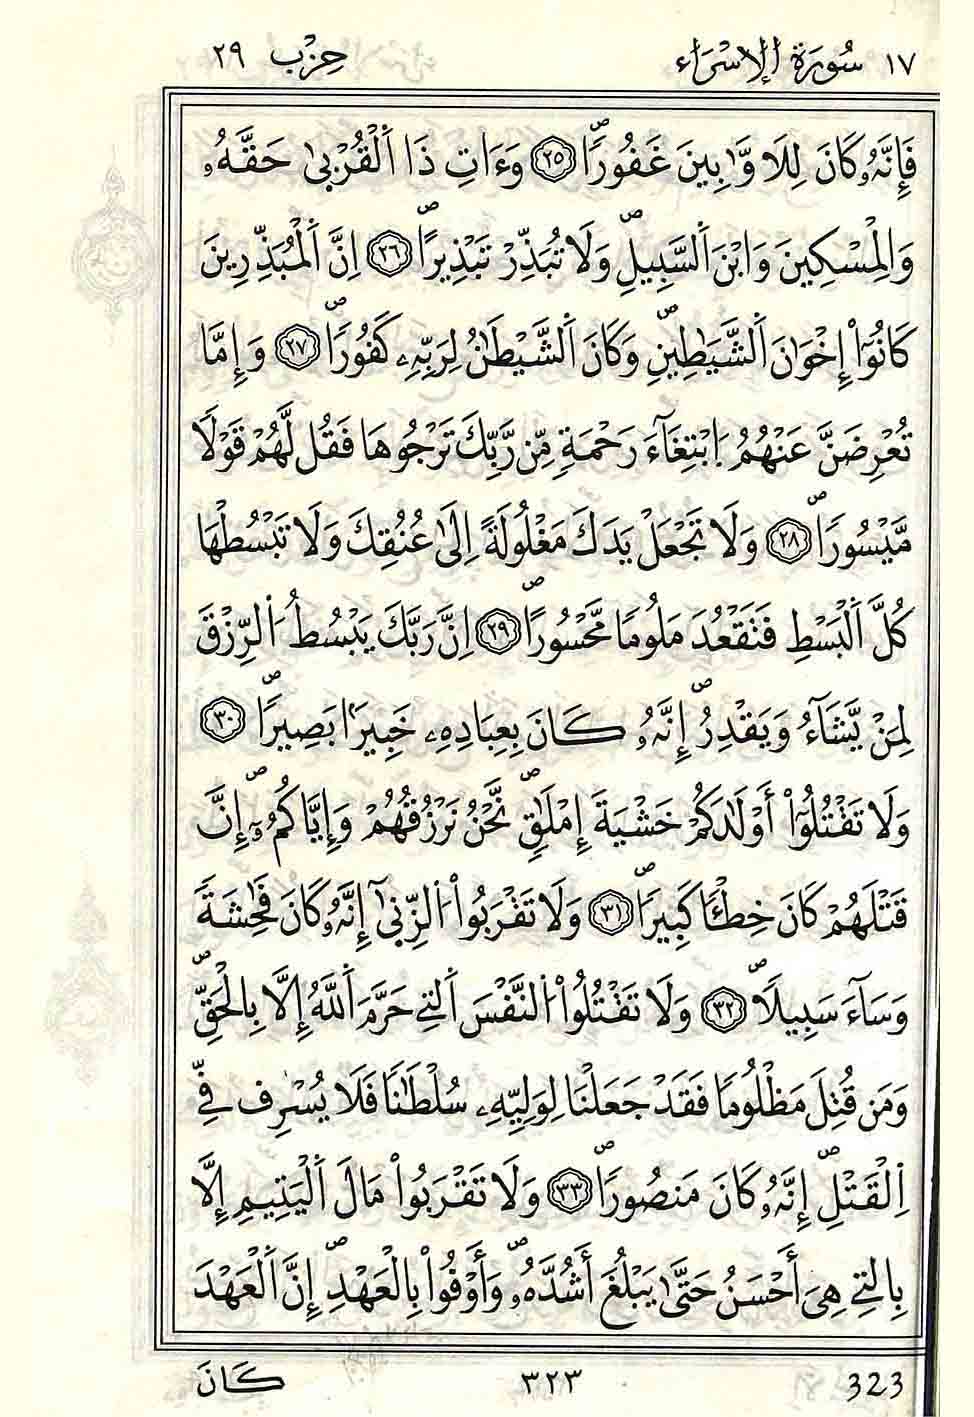 ١٧ سُورَةُ الإِسْرَاء حِزْب ٢٩
فَإِنَّهُۥ كَانَ لِلَاوَّٰبِينَ غَفُورًاۖ ٢٥ وَءَاتِ ذَا اَ۬لْقُرْب۪يٰ حَقَّهُۥ
وَالْمِسْكِينَ وَابْنَ اَ۬لسَّبِيلِۖ وَلَا تُبَذِّرْ تَبْذِيراًۖ ٢٦ اِنَّ اَ۬لْمُبَذِّرِينَ
كَانُوٓاْ إِخْوَٰنَ اَ۬لشَّيَٰطِينِۖ وَكَانَ اَ۬لشَّيْطَٰنُ لِرَبِّهِۦ كَفُوراًۖ ٢٧ وَإِمَّا
تُعْرِضَنَّ عَنْهُمُ اُ۪بْتِغَآءَ رَحْمَةٖ مِّن رَّبِّكَ تَرْجُوهَا فَقُل لَّهُمْ قَوْلاٗ
مَّيْسُوراًۖ ٢٨ وَلَا تَجْعَلْ يَدَكَ مَغْلُولَةً اِلَيٰ عُنُقِكَ وَلَا تَبْسُطْهَا
كُلَّ اَ۬لْبَسْطِ فَتَقْعُدَ مَلُوماٗ مَّحْسُوراًۖ ٢٩ اِنَّ رَبَّكَ يَبْسُطُ اُ۬لرِّزْقَ
لِمَنْ يَّشَآءُ وَيَقْدِرُۖ إِنَّهُۥ كَانَ بِعِبَادِهِۦ خَبِيراَۢ بَصِيراٗۖ ٣٠
وَلَا تَقْتُلُوٓاْ أَوْلَٰدَكُمْ خَشْيَةَ إِمْلَٰقٖۖ نَّحْنُ نَرْزُقُهُمْ وَإِيَّاكُمُۥٓۖ إِنَّ
قَتْلَهُمْ كَانَ خِطْـٔاٗ كَبِيراٗۖ ٣١ وَلَا تَقْرَبُواْ اُ۬لزِّن۪ىٰٓ إِنَّهُۥ كَانَ فَٰحِشَةٗ
وَسَآءَ سَبِيلاٗۖ ٣٢ وَلَا تَقْتُلُواْ اُ۬لنَّفْسَ اَ۬لتِے حَرَّمَ اَ۬للَّهُ إِلَّا بِالْحَقِّۖ
وَمَن قُتِلَ مَظْلُوماٗ فَقَدْ جَعَلْنَا لِوَلِيِّهِۦ سُلْطَٰناٗ فَلَا يُسْرِف فِّے
اِ۬لْقَتْلِۖ إِنَّهُۥ كَانَ مَنصُوراٗۖ ٣٣ وَلَا تَقْرَبُواْ مَالَ اَ۬لْيَتِيمِ إِلَّا
بِالتِے هِيَ أَحْسَنُ حَتَّىٰ يَبْلُغَ أَشُدَّهُۥۖ وَأَوْفُواْ بِالْعَهْدِۖ إِنَّ اَ۬لْعَهْدَ
323 ٣٢٣ كَانَ